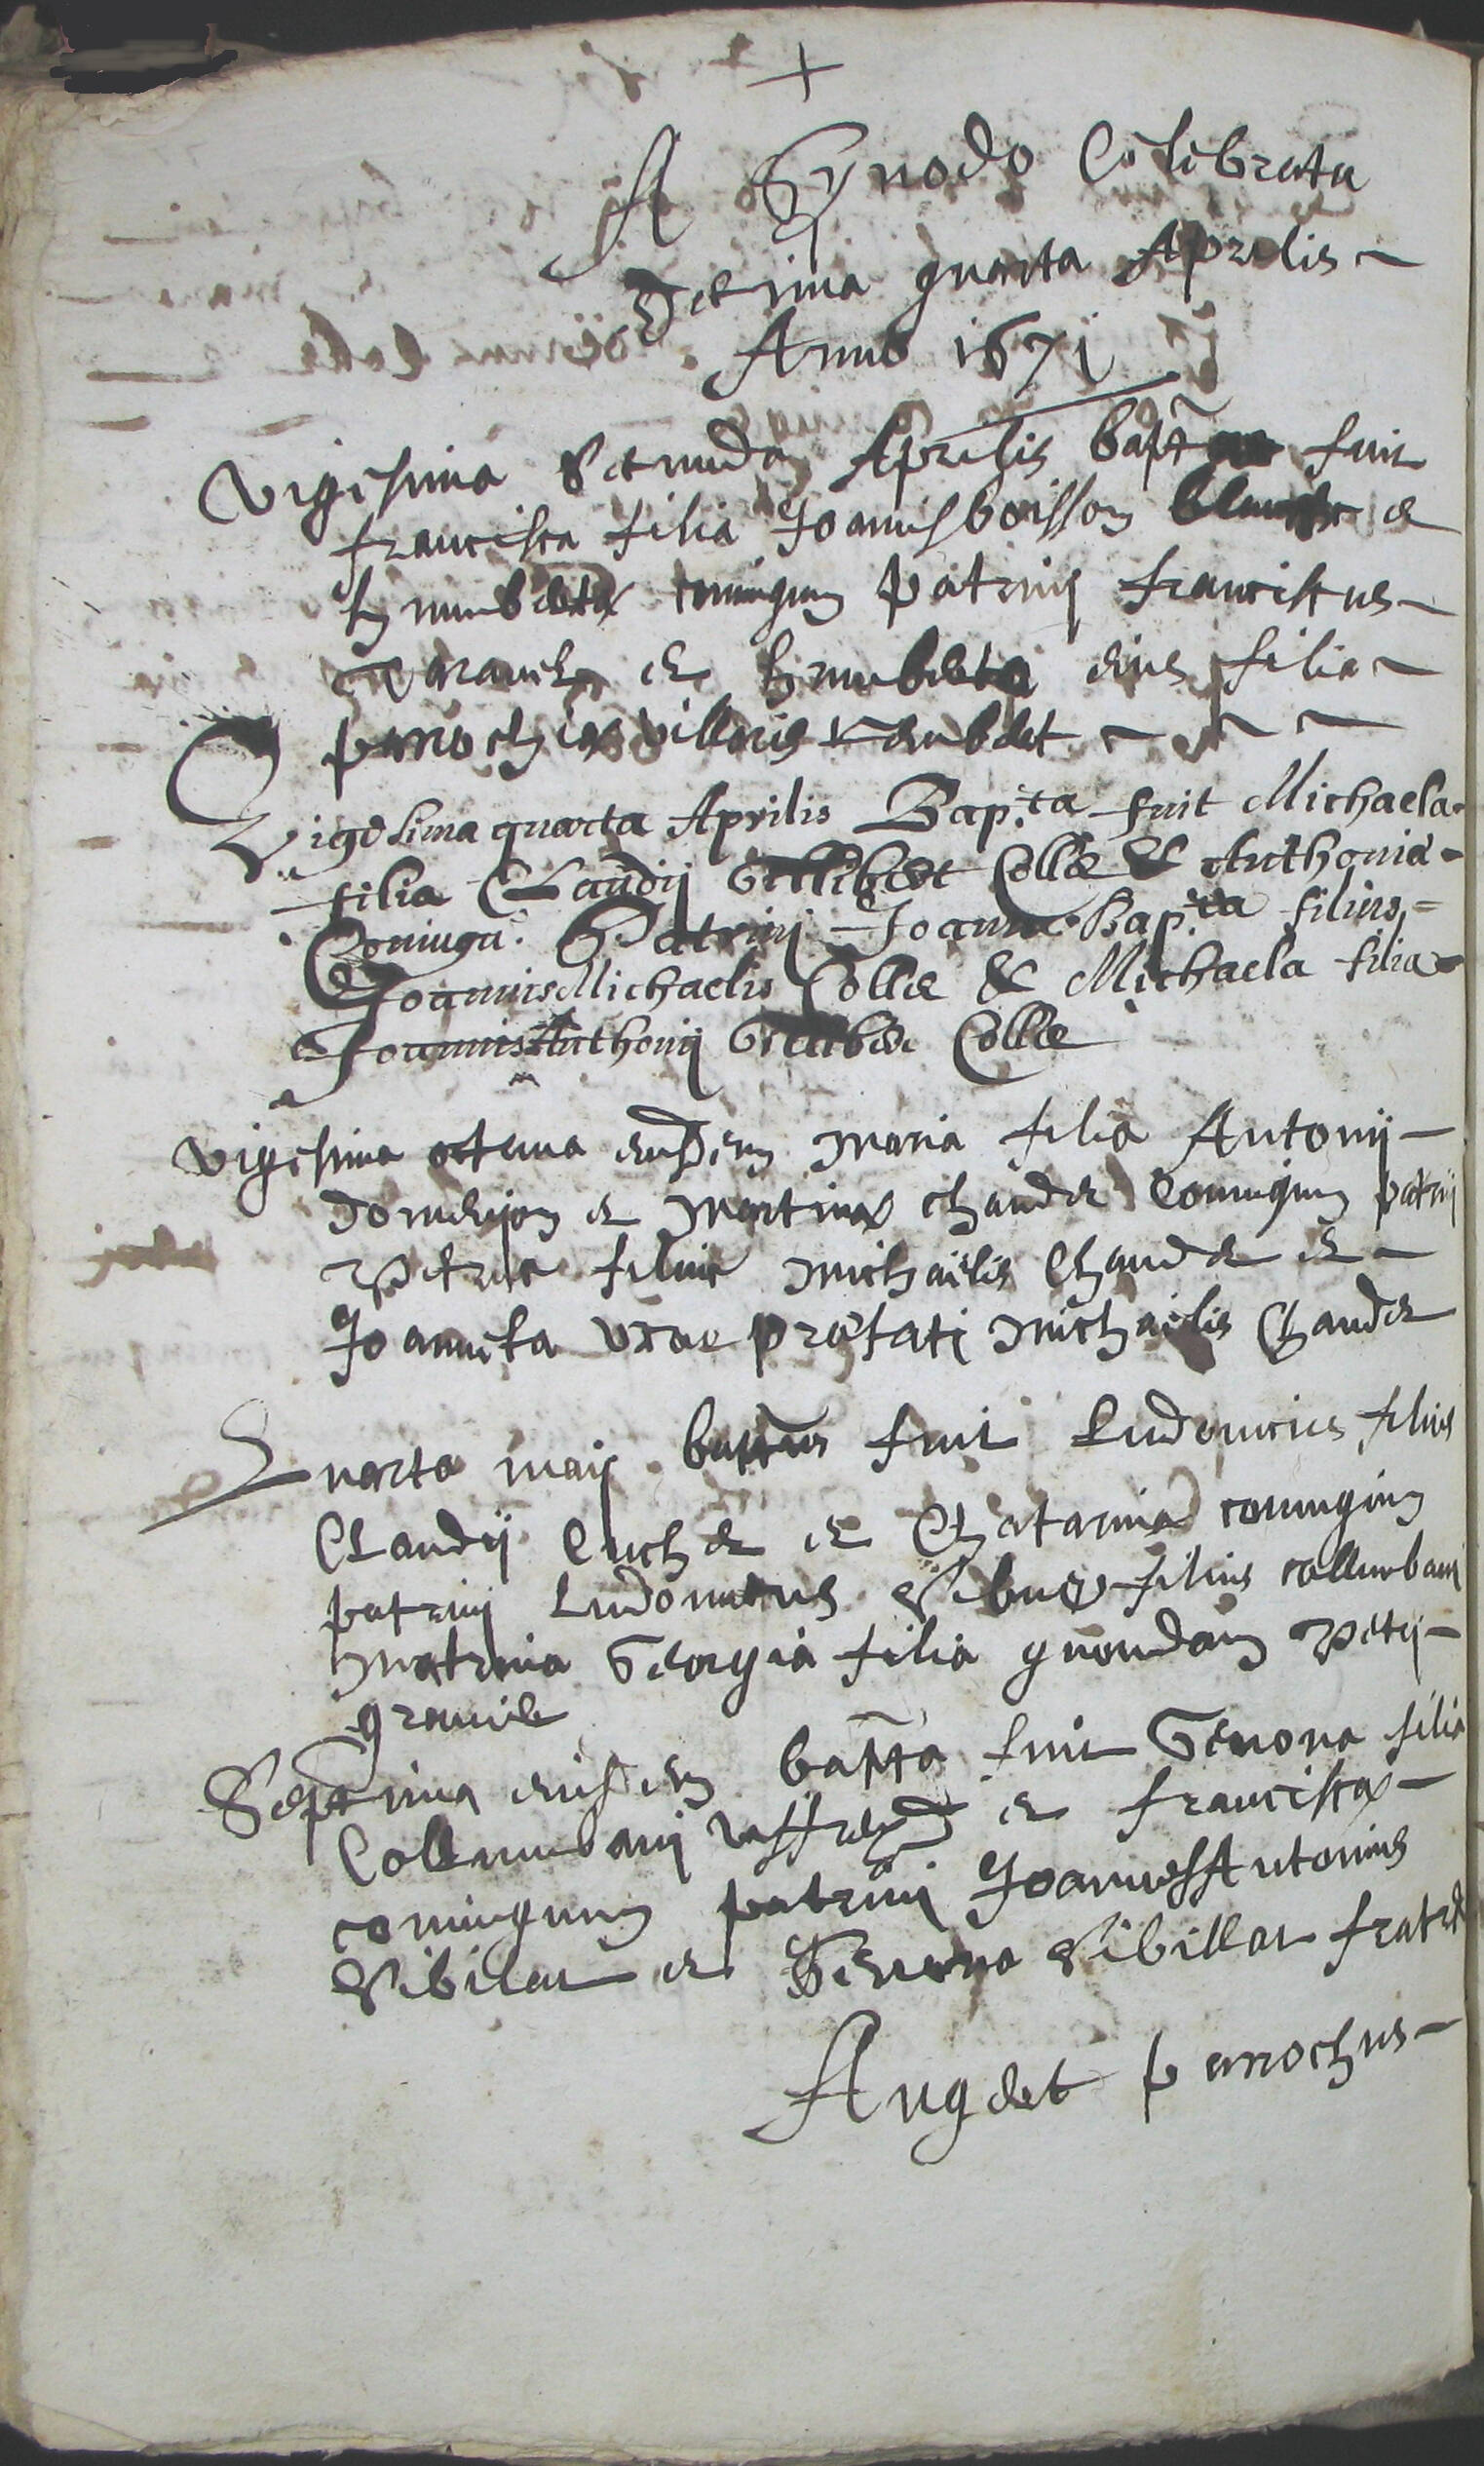 +
A Synodo Celebrata
Decima quarta Aprilis
Anno 1671
Vigesima secunda Aprilis bapta fuit
francisca filia Joannis boisson et
humbertæ coniugum patrini franciscus
et humberta eius filia
parrochiæ villaris
Vigesima quarta Aprilis Bap.ta fuit Michaela
filia Claudij Gillibert Colle & Anthonia
Coniugu. Patrini Joannes Bap.ta filius
Joannis Michaelis Collæ & Michaela filia
Joannis Anthonij Collæ
Vigesima octava eiusdem maria filia Antonij
et martinæ chaudet Coniugum patrij
Petrus filius michaëlis Chaudet et
Joanneta uxor præfati michaëlis Chaudet
Quarta maij baptus fuit Ludovicus filius
Claudij et Chatarina coniugum
patrini Ludovicus filius collumbani
matrina Georgia filia quondam Petri
Septima eiusdem bapta fuit Genona filia
Collumbani et franciscæ
coniugum patrini Joannes Antonius
Sibillat et Genona Sibillat fratres
Augdet parrochus